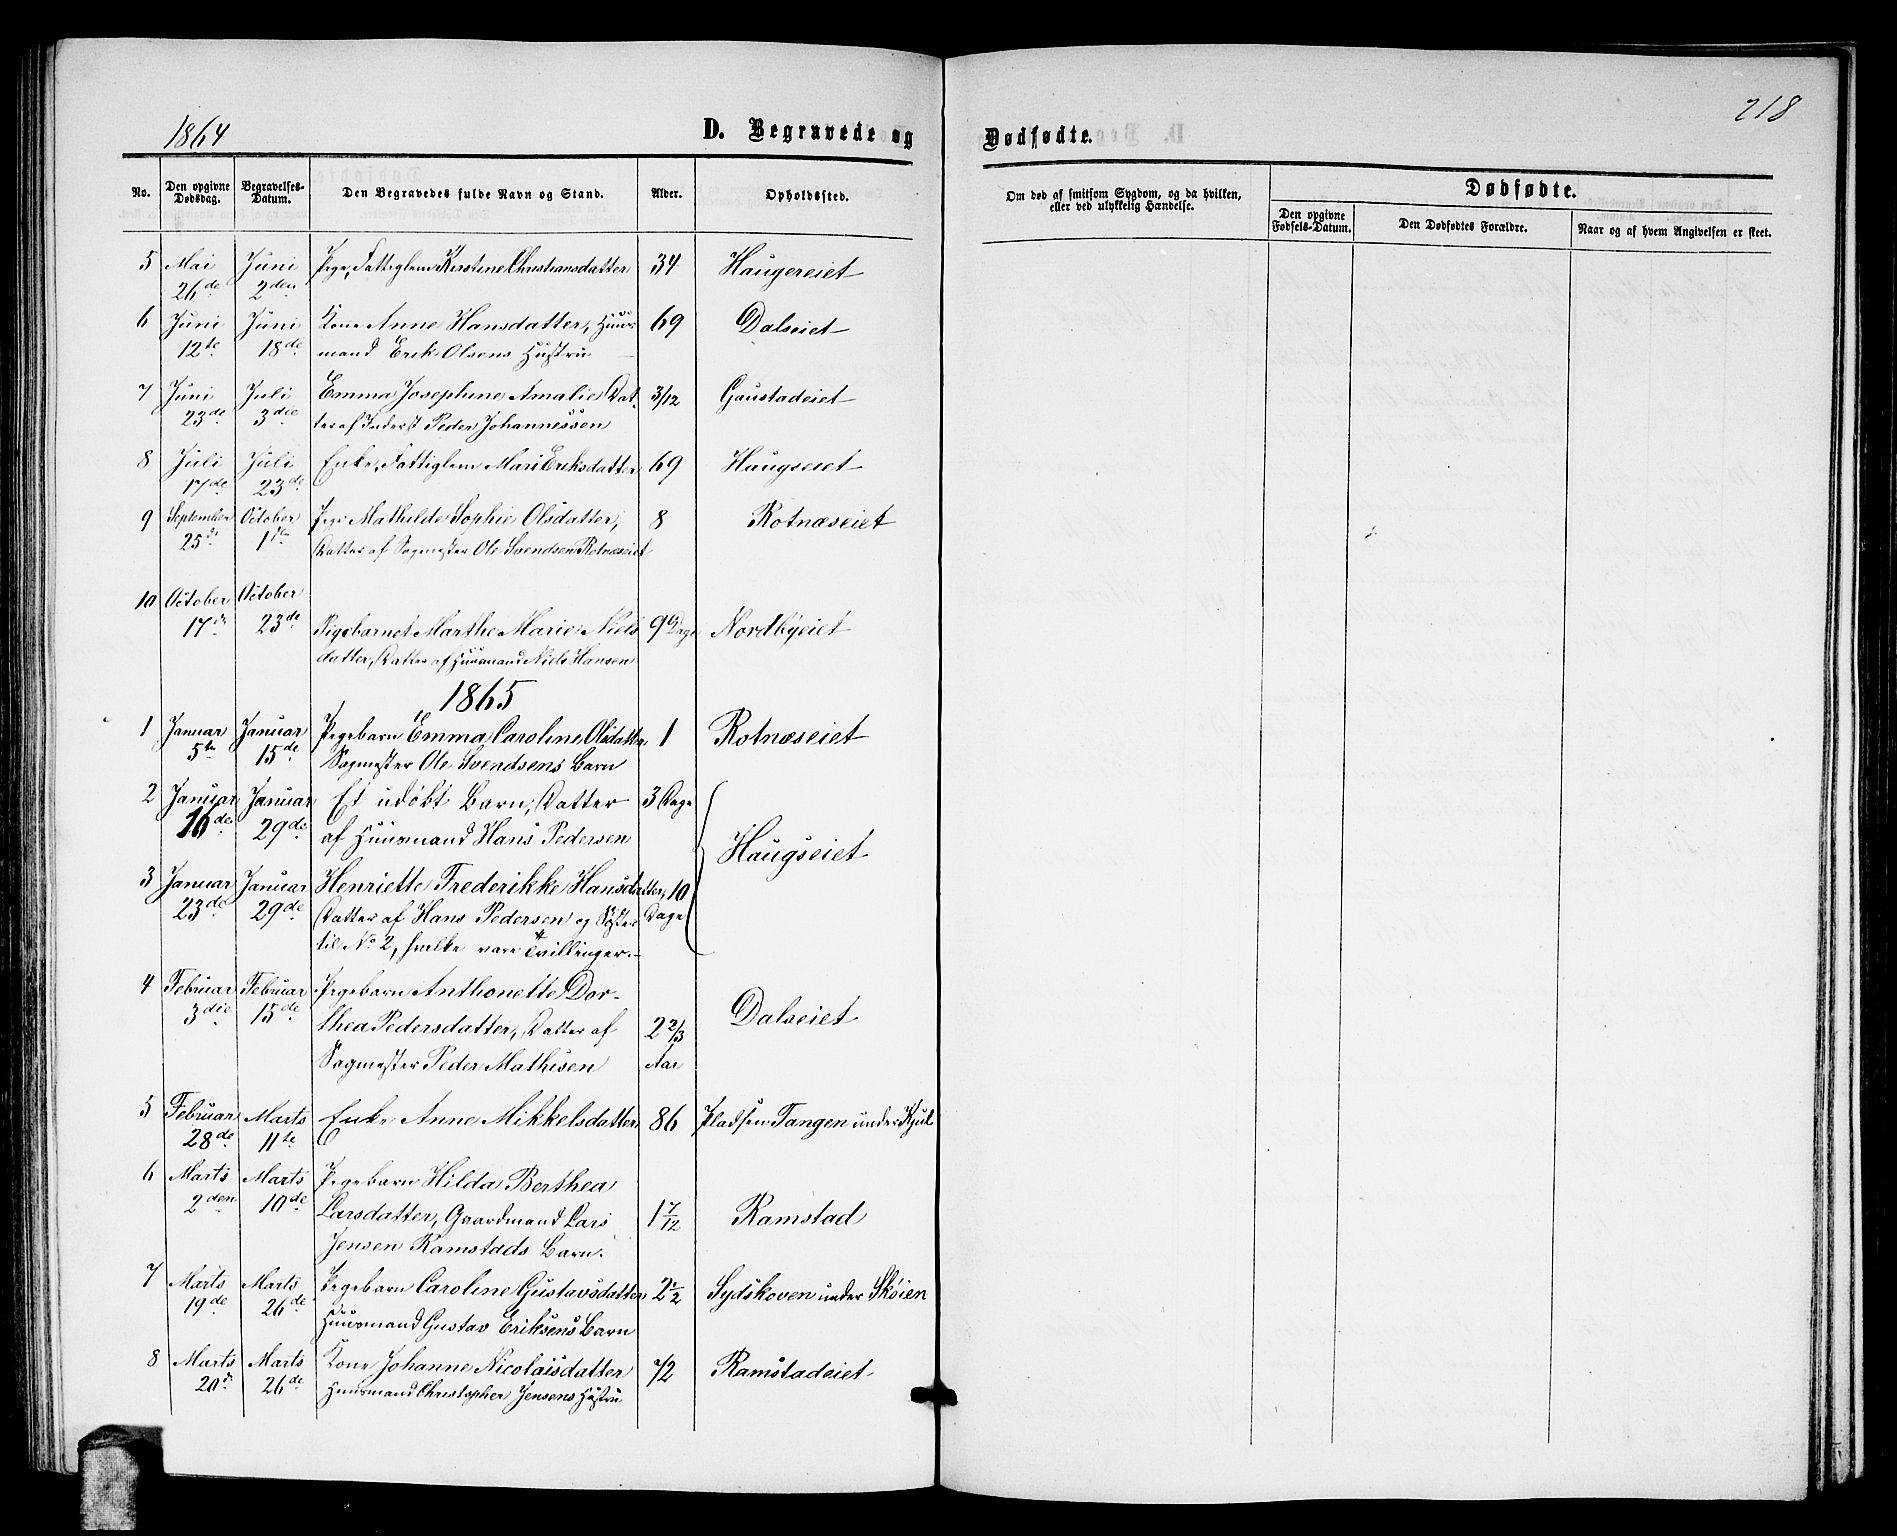 1864
D. Begravede og
Dødfødte.
218
No.
Den opgivne Dødsdag.
Begravelses-Datum.
Den Begravedes fulde Navn og Stand.
Alder.
Opholdssted.
Om død af smitsom Sygdom, og da hvilken, eller ved ulykkelig Hændelse.
Dødfødte.
Den opgivne Fødsels-Datum.
Den Dødfødtes Forældre.
Naar og af hvem Angivelsen er skeet.
5 Mai Juni Pige, Fattiglem Kirstine Christiansdatter 34 Haugereiet
26de 2den
6 Juni Juni Kone Anne Hansdatter, Huus- 69 Dalseiet
12te 18de mand Erik Olsens Hustru
7 Juni Juli Emma Josephine Amalie Dat- 3/12 Gaustadeiet
23de 3die ter af Inderst Peder Johannessen
8 Juli Juli Enke, Fattiglem Mari Eriksdatter 69 Haugseiet
17de 23de
9 September October Pige Mathilde Sophie Olsdatter, 8 Rotnæseiet
25de 1ste Datter af Sagmester Ole Svendsen Rotnæseiet
10 October October
17de 23de Pigebarnet Marthe Marie Niels 9 Dage Nordbyeiet
datter, Datter af Huusmand Niels Hansen
1865
1 Januar Januar Pigebarn Emma Caroline Olsdatter 1 Rotnæseiet
5te 15de Sagmester Ole Svendsens Barn
2 Januar Januar Et udøbt Barn, Datter 3 Dage
16de 29de af Huusmand Hans Pedersen Haugseiet
3 Januar Januar Henriette Frederikke Hansdatter, 10
23de 29de Datter af Hans Pedersen og Søster Dage
til No 2, hvilke vare Tvillinger.
4 Februar Februar Pigebarn Anthonette Dor-
3die 15de thea Pedersdatter, Datter af 2 2/3 Dalseiet
Sagmester Peder Mathisen Aar
5 Februar Marts Enke Anne Mikkelsdatter 86 Pladsen Tangen under Kjul
28de 11te
6 Marts Marts Pigebarn Hilda Berthea
2den 10de Larsdatter, Gaardmand Lars 1 7/12 Ramstad
Jensen Ramstads Barn.
7 Marts Marts Pigebarn Caroline Gustavsdatter 2 1/2 Sydskoven under Skøien
19de 26de Huusmand Gustav Eriksens Barn
8 Marts Marts Kone Johanne Nicolaisdatter 72 Ramstadeiet
20de 26de Huusmand Christopher Jensens Hustru